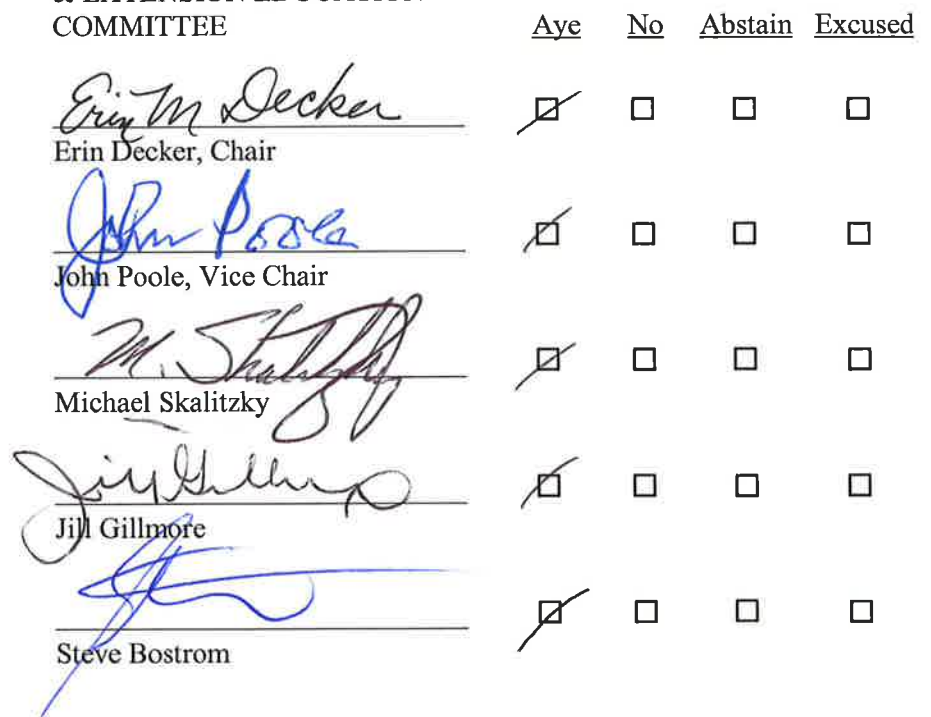 & EXTENSION EDUCATION
COMMITTEE Aye No Abstain Excused
Erin M Decker
Erin Decker, Chair
John Poole
John Poole, Vice Chair
M. Skalitzky
Michael Skalitzky
Jill Gillmore
Jill Gillmore
Steve Bostrom